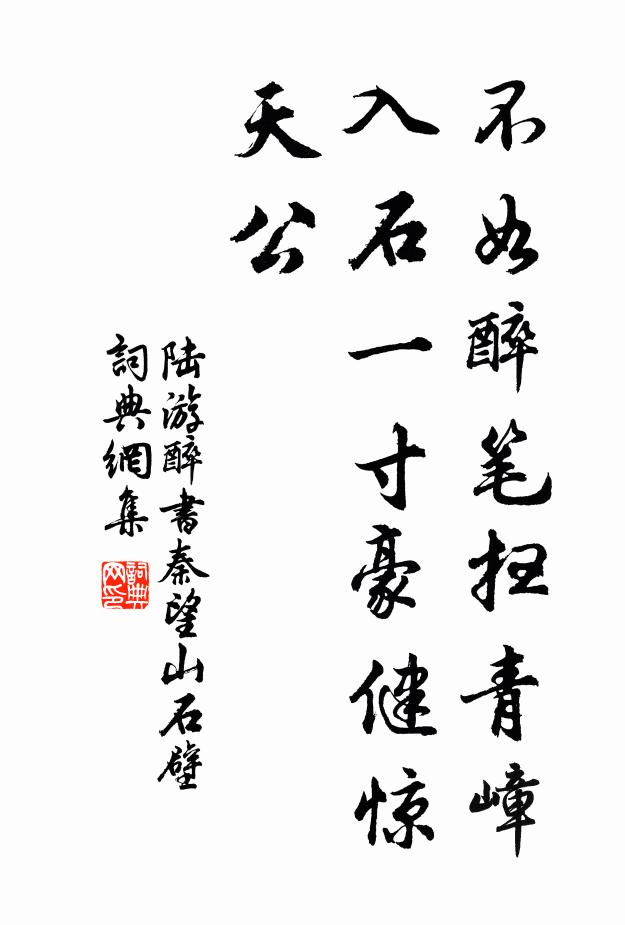 不如醉笔扫青嶂
入石一寸豪健惊
天公
陆游醉书秦望山石壁
詞典網集
詞典网印